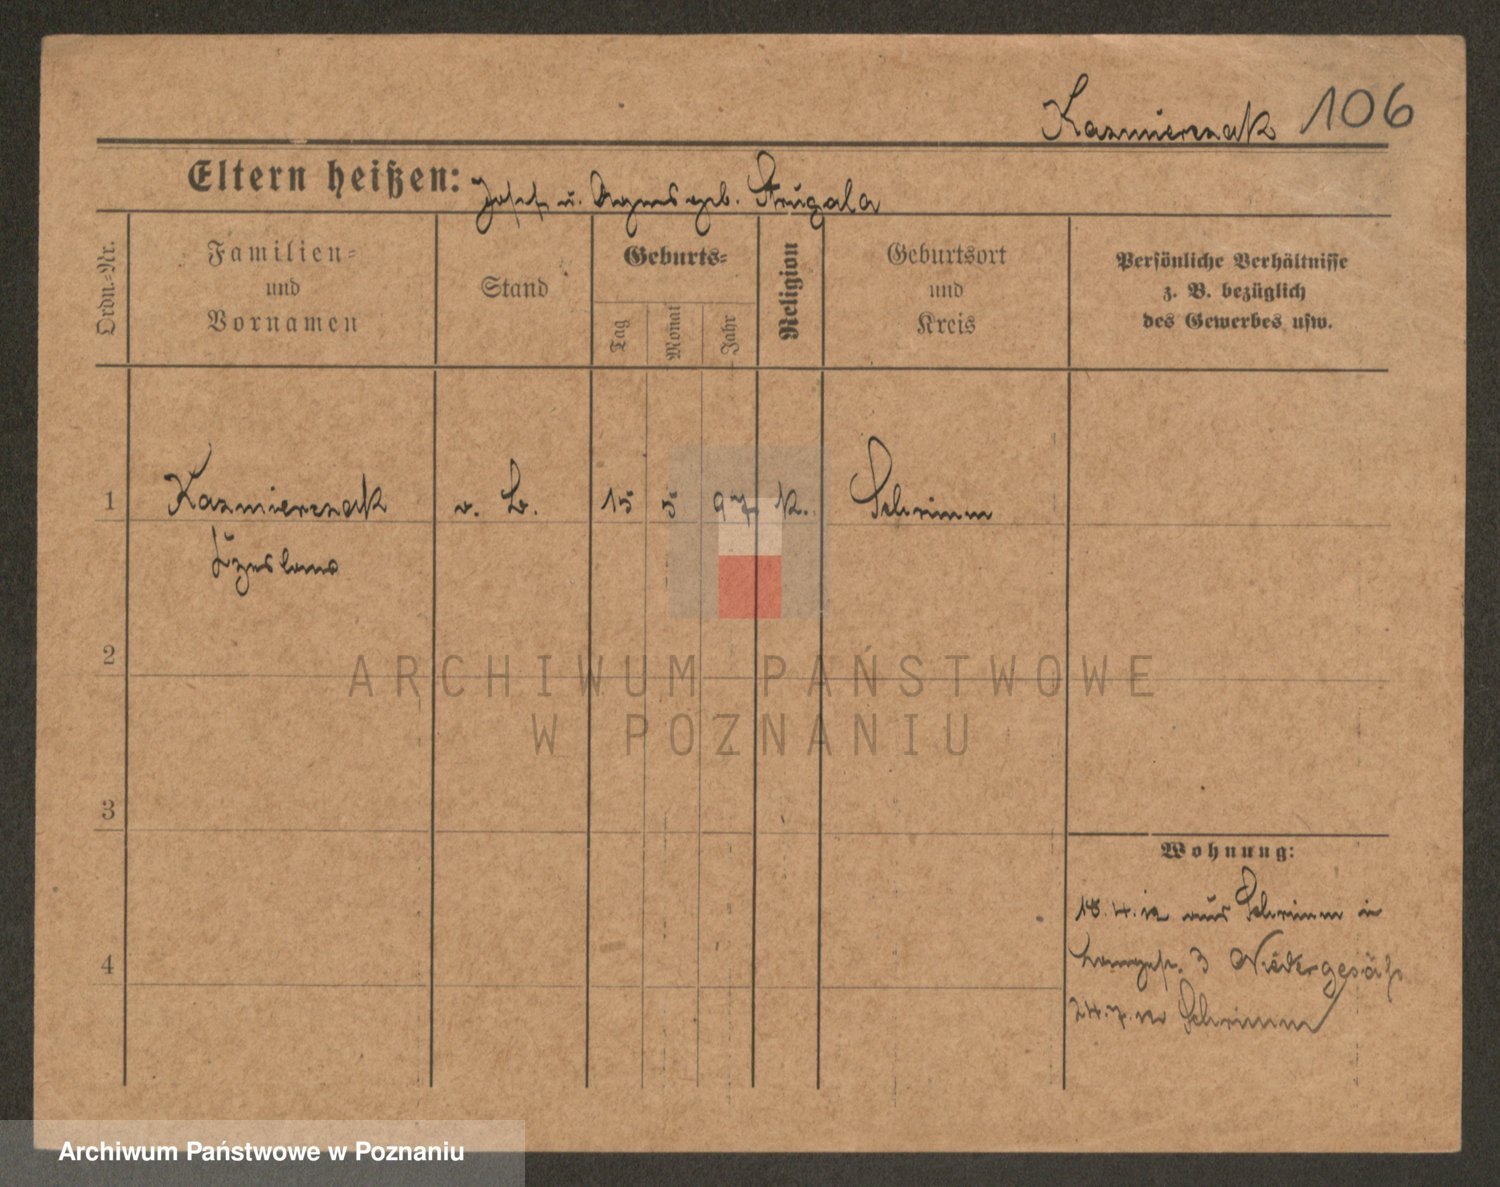 Kazmierczak 106
Eltern heißen: Josef u. Agnes geb. Strugala
Ordn.-Nr.
Familien-
und
Vornamen
Stand
Geburts-
Tag
Monat
Jahr
Religion
Geburtsort
und
Kreis
Persönliche Verhältnisse
z. B. bezüglich
des Gewerbes usw.
1 Kazmierczak 15 5 97 K. Schrimm
2
ARCHIWUM PAŃSTWOWE
W POZNANIU
3
Wohnung:
aus Schrimm in
4
3 Niedergesäß
Schrimm
Archiwum Państwowe w Poznaniu